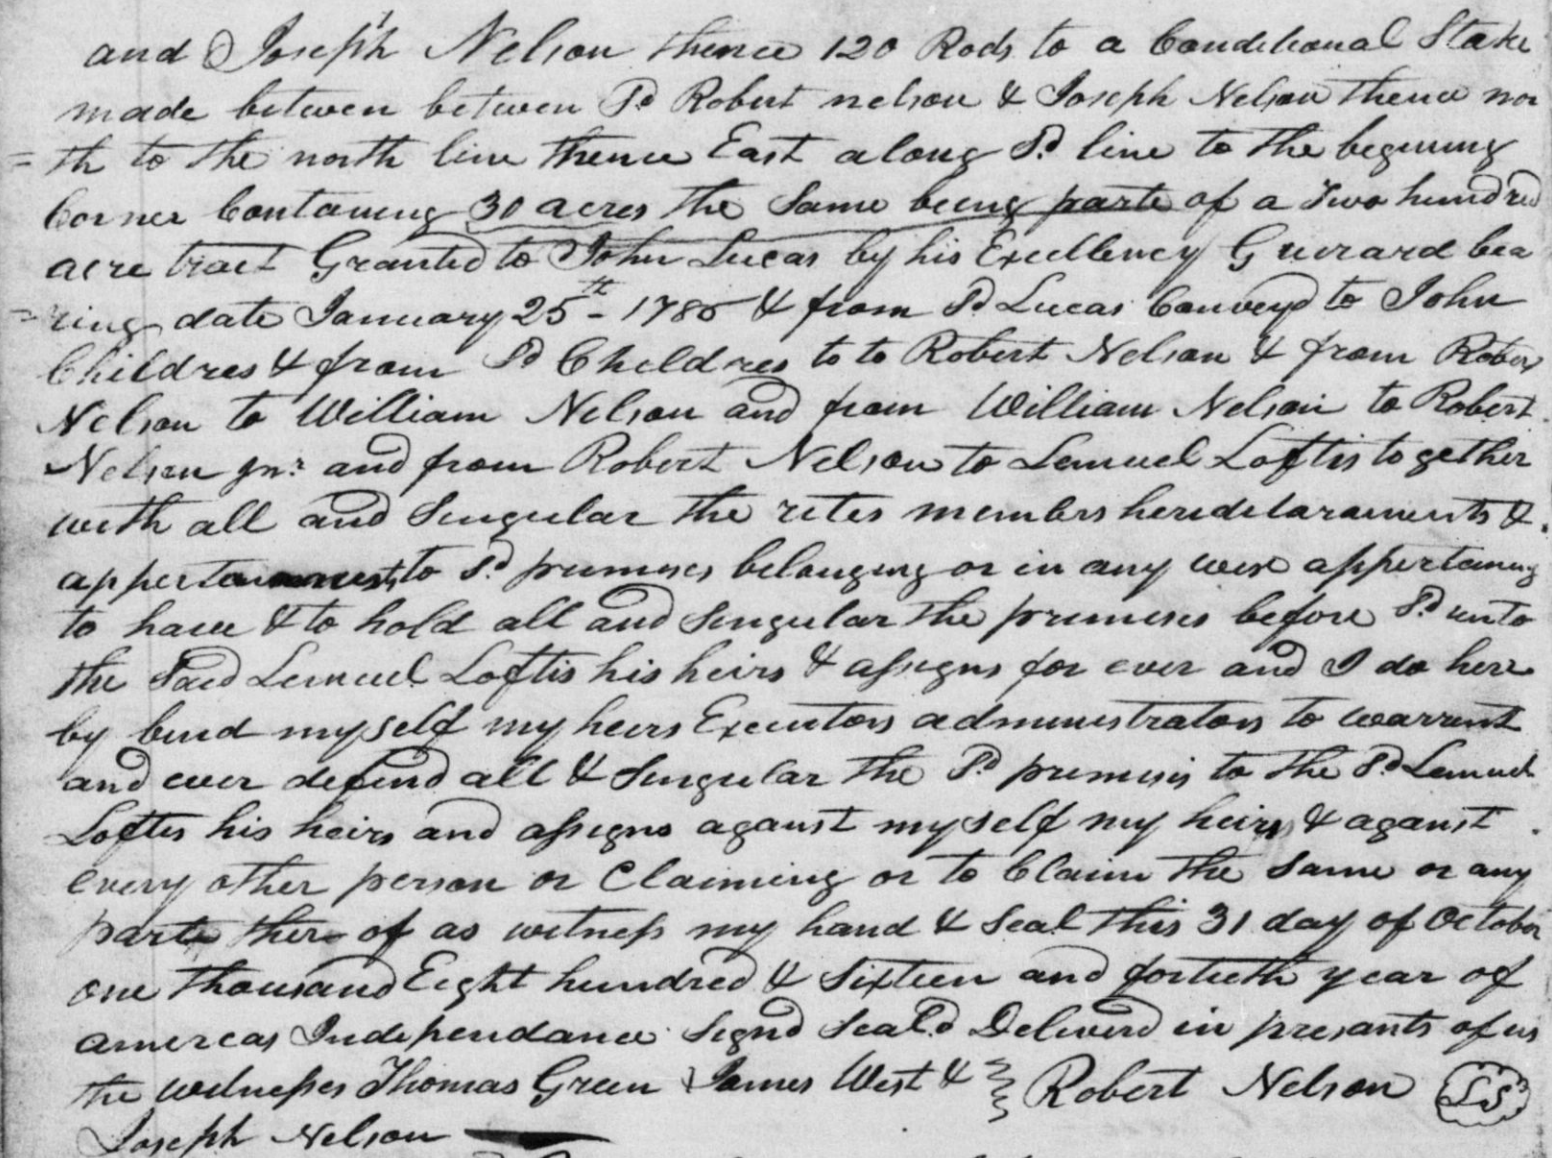 and Joseph Nelson thence 120 Rods to a Conditional Stake
made between between Sd Robert nelson & Joseph Nelson thence nor
= th to the north line thence East along Sd line to the begining
Corner Containing 30 acres the Same being parte of a Two hundred
acre tract Granted to John Lucas by his Excellency Guerard bea
= ring date January 25th - 1785 & from Sd Lucas Conveyd to John
Childres & from Sd Childres to to Robert Nelson & from Rober
Nelson to William Nelson and from William Nelson to Robert
Nelson jnr and from Robert Nelson to Lemuel Loftis together
with all and Singular the rites members heredetaraments &
to Sd premises belonging or in any wise appertaining
to have & to hold all and Singular the premises before Sd unto
the Said Lemuel Loftis his heirs & assigns for ever and I do here
by bind my self my heirs Executors administrators to warrent
and ever defend all & Singular the Sd premises to the Sd Lemuel
Loftis his heirs and assigns against my self my heirs & against
every other person or Claiming or to Claim the Same or any
parte there of as witness my hand & Seal this 31 day of October
one thousand Eight hundred & Sixteen and fortieth year of
amereas Independance Signd Seald Deliverd in presants of us
the witnesses Thomas Green James West & Robert Nelson LS
Joseph Nelson